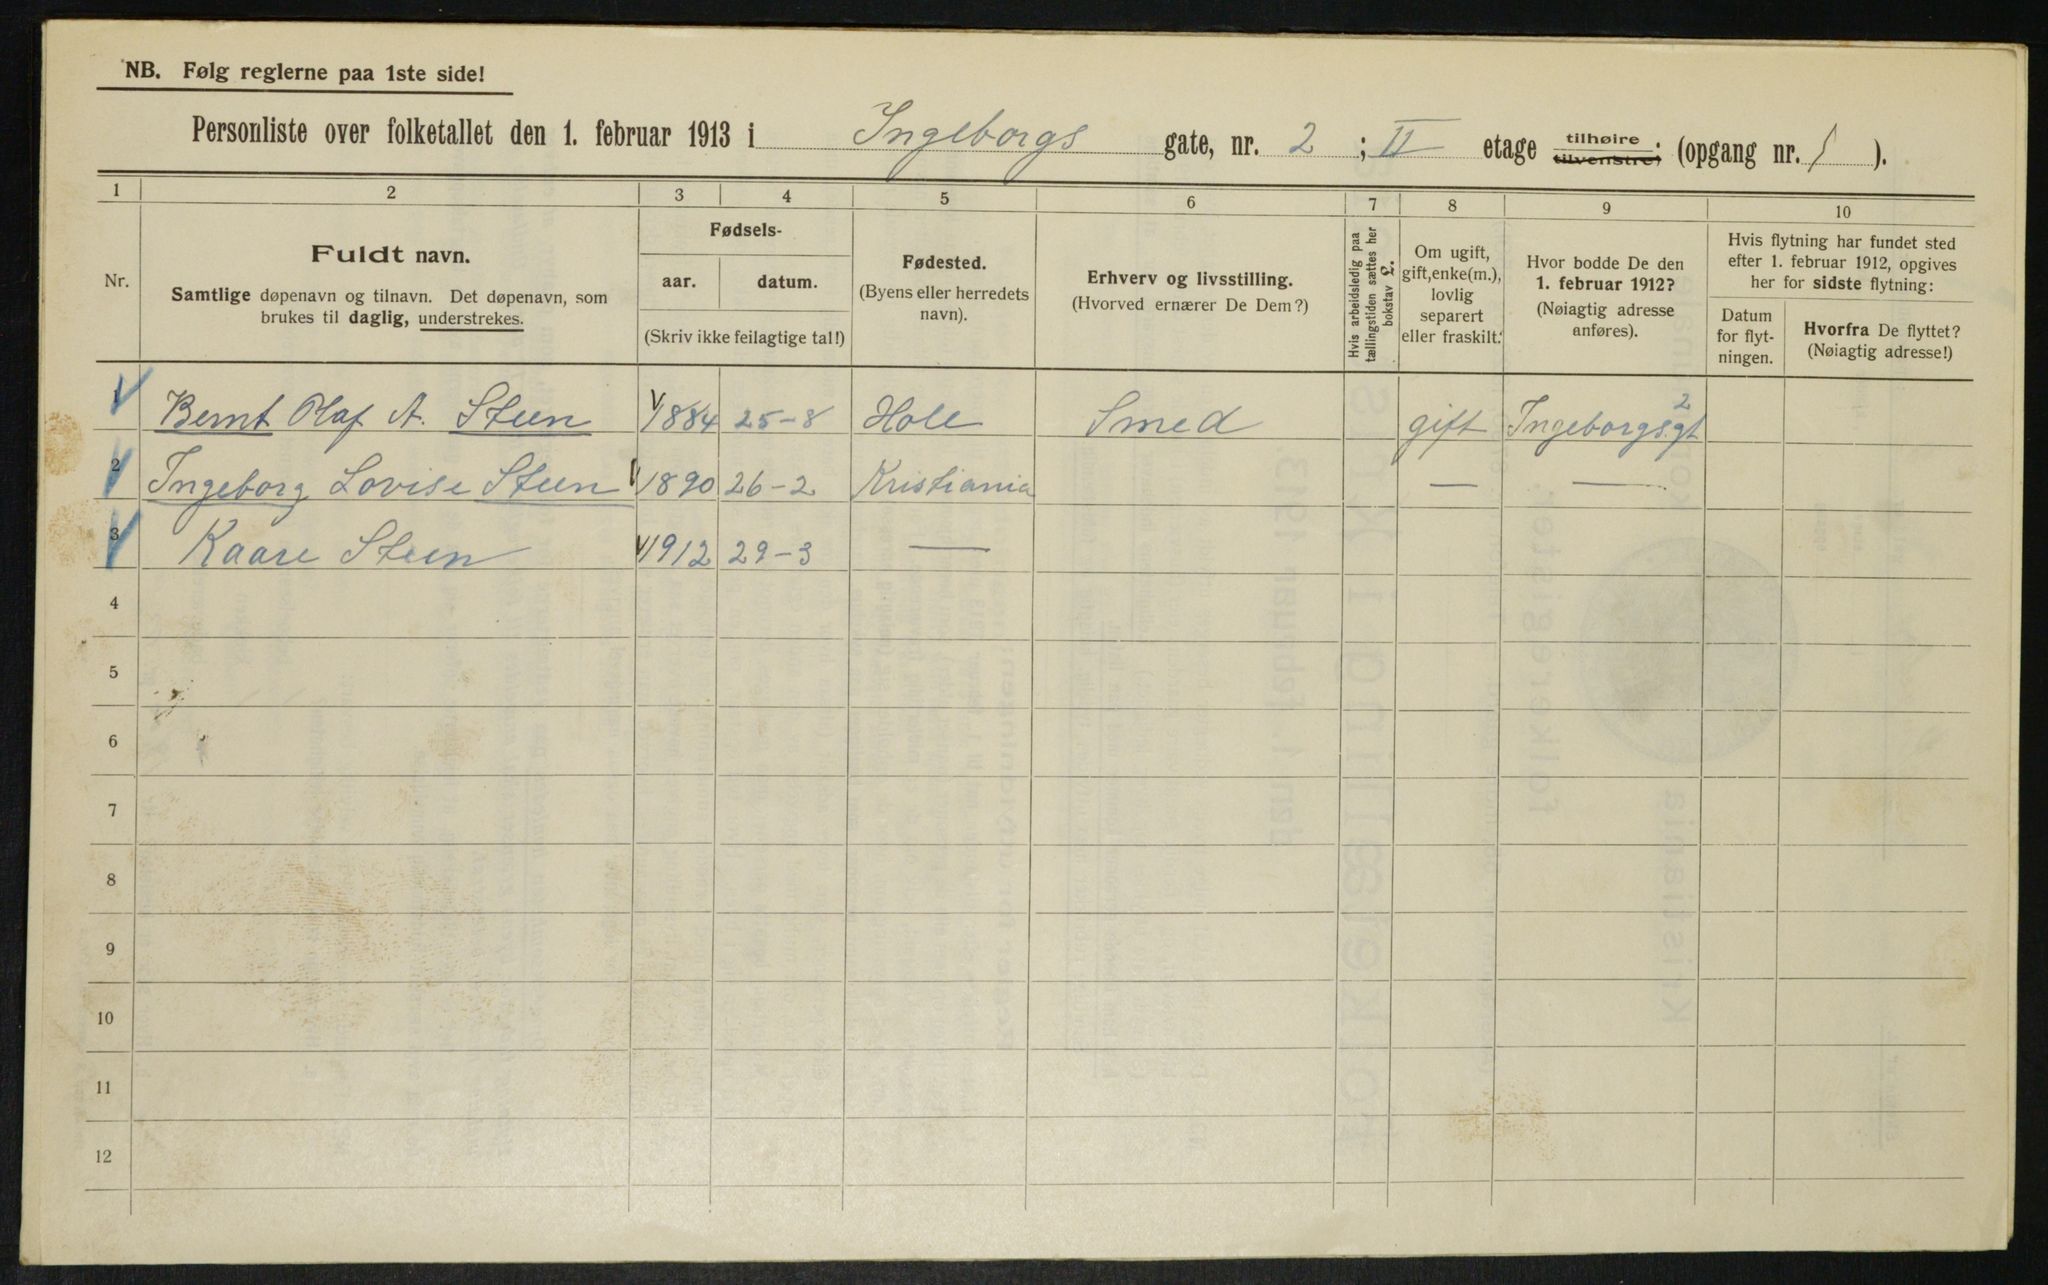 NB. Følg reglerne paa 1ste side!
Personliste over folketallet den 1. februar 1913 i Ingeborgs gate, nr. 2 ; II etage tilhøire. tilvenstre, (opgang nr. 1 ).
1 2 3 4 5 6 7 8 9 10
Nr.
Fuldt navn.
Samtlige døpenavn og tilnavn. Det døpenavn, som
brukes til daglig, understrekes.
Fødsels-
aar. datum.
(Skriv ikke feilagtige tal!)
Fødested.
(Byens eller herredets
navn).
Erhverv og livsstilling.
(Hvorved ernærer De Dem?)
Hvis arbeidsledig paa
tællingstiden sættes her
bokstav L.
Om ugift,
gift, enke(m.),
lovlig
separert
eller fraskilt.
Hvor bodde De den
1. februar 1912?
(Nøiagtig adresse
anføres).
Hvis flytning har fundet sted
efter 1. februar 1912, opgives
her for sidste flytning:
Datum
for flyt-
ningen.
Hvorfra De flyttet?
(Nøiagtig adresse!)
1 Bernt Olaf A. Steen 1884 25-8 Hole Smed gift Ingeborgs.gt 2
2 Ingeborg Lovise Steen 1890 26-2 Kristiania — —
3 Kaare Steen 1912 29-3 —
4
5
6
7
8
9
10
11
12